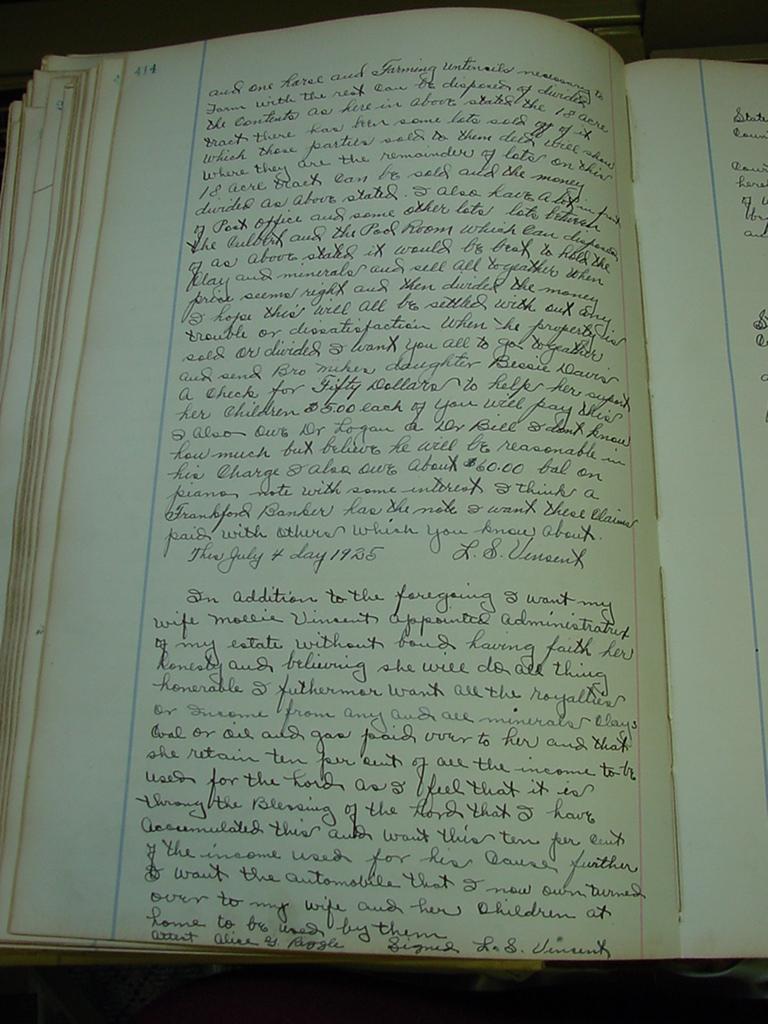 414
and one horse and Farming untensils necessary to
Farm with the rest can be disposed of divided
the Contents as here in above stated the 18 acre
tract there has been some lots sold off of it
which those parties sold to them deed will show
where they are the remainder of lots on this
18 acre tract can be sold and the money
divided as above stated. I also have a lot in front
of Post office and some other lots lots between
the Culbert and the Pool Room which can disposed
of as above stated it would be best to hold the
Clay and minerals and sell all togeather when
price seems right and then divided the money
I hope this will all be settled with out any
trouble or dissatisfaction when the property is
sold or divided I want you all to go togeather
and send Bro mikes daughter Bessie Davis
a Check for Fifty Dollars to help her support
her Children $5.00 each of you will pay this
I also owe Dr Logan a Dr Bill I dont know
how much but believe he will be reasonable in
his Charge I also owe about $60.00 bal on
piano note with some interest I think a
Frankford Banker has the note I want these Claims
paid with others which you know about.
This July 4 day 1925 L. S. Vinsent
In addition to the foregoing I want my
wife Mollie Vinsent appointed administratrix
of my estate without bond having faith her
honesty and believing she will do all thing
honerable I futhermor want all the royalties
or Income from any and all minerals Clays
Coal or oil and gas paid over to her and that
she retain ten per cent of all the income to be
used for the Lord as I feel that it is
throug the Blessing of the Lord that I have
accumulated this and want this ten per cent
of the income used for his Cause further
I want the automobile that I now own turned
over to my wife and her Children at
home to be used by them
attest Alice G Signed L. S. Vinsent
State
Coun
Cour